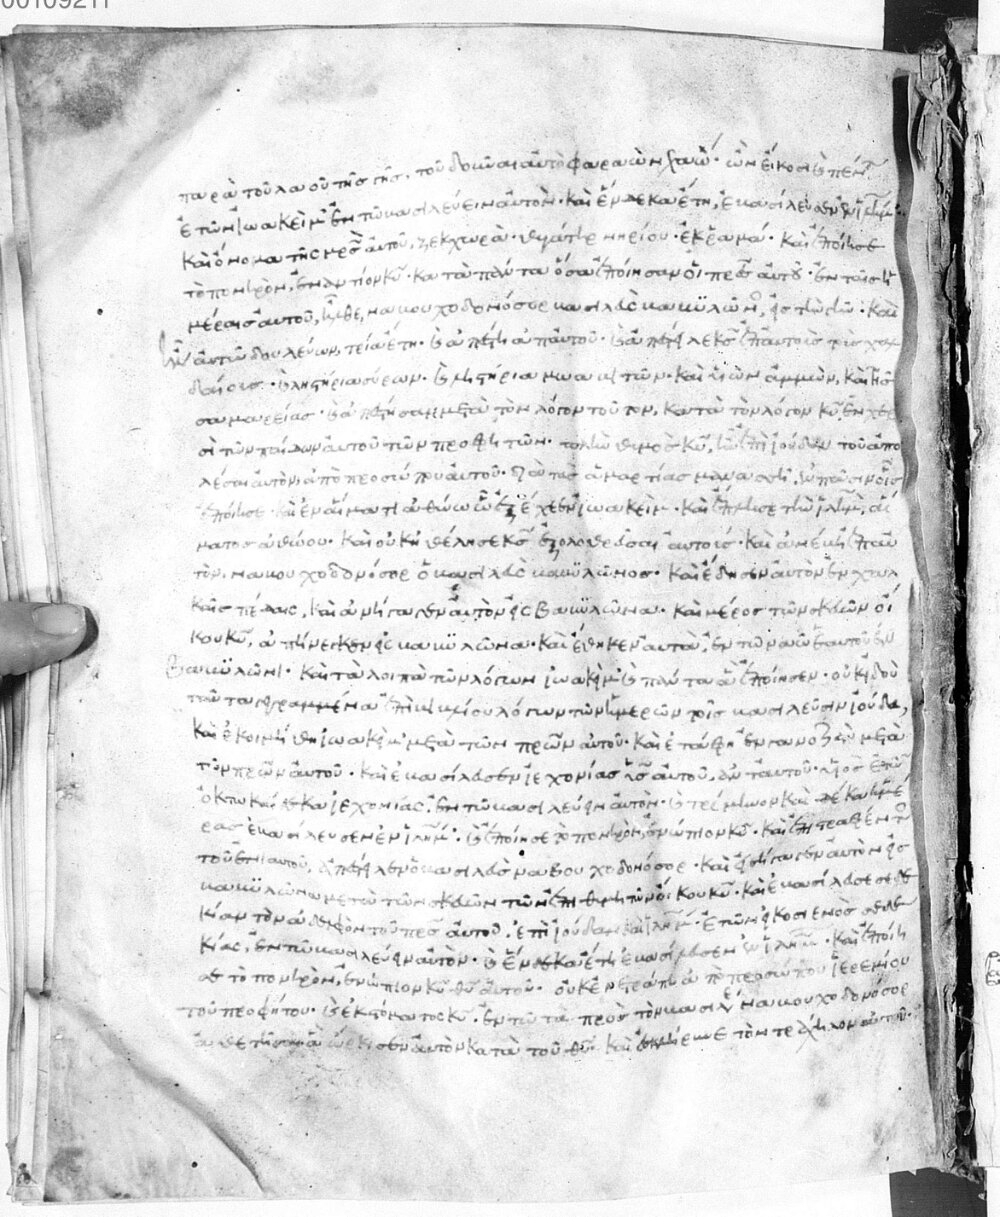 00109211
παρὰ τοῦ λαοῦ τῆς γῆς· τοῦ δοῦναι αὐτὸ φαραὼ νεχαώ· ὢν εἴκοσι καὶ πέντε
ἐτῶν ἰωακεὶμ ἐν τῷ βασιλεύειν αὐτὸν· καὶ ἕνδεκα ἔτη, ἐβασίλευσεν ἐν ἰλημ
καὶ ὄνομα τῆς μρς αὐτοῦ, ζεκχωρὰ· θυγάτηρ νηρίου ἐκ ῥαμά· καὶ ἐποίησε
τὸ πονηρὸν, ἐναντίον κυ· κατὰ πάντα ὅσα ἐποίησαν οἱ πρες αὐτοῦ· ἐν ταῖς ἡ
μέραις αὐτοῦ, ἦλθε, ναβουχοδονόσορ βασιλεὺς βαβυλῶνος, εἰς τὴν γῆν· καὶ
ἦν αὐτῷ δουλεύων, τρία ἔτη· καὶ ἀπέστη ἀπ' αὐτοῦ· καὶ ἀπέστειλε κς ἐπ' αὐτοὺς τοὺς χαλ
δαίους· καὶ ληστήρια σύρων· καὶ ληστήρια μωαβιτῶν· καὶ υἱῶν ἀμμὼν, καὶ τῆς
σαμαρείας· καὶ ἀπέστησαν μετὰ τὸν λόγον τοῦτον, κατὰ τὸν λόγον κυ ἐν χερ
σὶ τῶν παίδων αὐτοῦ τῶν προφητῶν· πλὴν θυμὸς κυ, ἦν ἐπὶ ἰούδαν τοῦ ἀπο
λέσαι αὐτὸν, ἀπὸ προσώπου αὐτοῦ· διὰ τὰς ἁμαρτίας μανασσῆ, ἐν πᾶσιν οἷς
ἐποίησε· καὶ ἐν αἵματι ἀθώω ὧ ἐξέχεεν ἰωακείμ· καὶ ἔπλησε τὴν ἰλημ, αἵ
ματος ἀθώου· καὶ οὐκ ἠθέλησε κς ἐξολοθρεῦσαι αὐτούς· καὶ ἀνέβη ἐπ' αὐ
τὸν, ναβουχοδονόσορ ὁ βασιλεὺς βαβυλῶνος· καὶ ἔδησεν αὐτὸν ἐν χαλ
καῖς πέδαις, καὶ ἀπήγαγεν αὐτὸν εἰς βαβυλῶνα· καὶ μέρος τῶν σκευῶν οἴ
κου κυ, ἀπήνεγκεν εἰς βαβυλῶνα· καὶ ἔθηκεν αὐτὰ, ἐν τῷ ναῷ ἑαυτοῦ ἐν
βαβυλῶνι· καὶ τὰ λοιπὰ τῶν λόγων ἰωακεὶμ καὶ πάντα ἃ ἐποίησεν· οὐκ ἰδοὺ
ταῦτα γεγραμμένα ἐπὶ βιβλίου λόγων τῶν ἡμερῶν τοῖς βασιλεῦσιν ἰούδα,
καὶ ἐκοιμήθη ἰωακεὶμ μετὰ τῶν πρων αὐτοῦ· καὶ ἐτάφη ἐν γανοζὰν μετὰ
τῶν πρων αὐτοῦ· καὶ ἐβασίλευσεν ἰεχονίας υς αὐτοῦ, ἀντ' αὐτοῦ· υἱὸς ἐτῶν
ὀκτωκαίδεκα ἰεχονίας, ἐν τῷ βασιλεύειν αὐτὸν· καὶ τρίμηνον καὶ δέκα ἡμέ
ρας ἐβασίλευσεν ἐν ἰλημ· καὶ ἐποίησε τὸ πονηρὸν, ἐνώπιον κυ· καὶ ἐπιστρέφοντος
τοῦ ἐνιαυτοῦ, ἀπέστειλεν ὁ βασιλεὺς ναβουχοδονόσορ· καὶ εἰσήγαγεν αὐτὸν εἰς
βαβυλῶνα μετὰ τῶν σκευῶν τῶν ἐπιθυμητῶν οἴκου κυ· καὶ ἐβασίλευσε σεδε
κίαν τὸν ἀδελφὸν τοῦ πρς αὐτοῦ, ἐπὶ ἰούδαν καὶ ἰλημ· ἐτῶν εἴκοσι ἑνὸς σεδε
κίας, ἐν τῷ βασιλεύειν αὐτὸν· καὶ ἕνδεκα ἔτη ἐβασίλευσεν ἐν ἰλημ· καὶ ἐποίη
σε τὸ πονηρὸν, ἐνώπιον κυ θυ αὐτοῦ· οὐκ ἐνετράπη ἀπὸ προσώπου ἰερεμίου
τοῦ προφήτου· καὶ ἐκ στόματος κυ· ἐν τῷ τὰ πρὸς τὸν βασιλέα ναβουχοδονόσορ
ἀθετῆσαι ἃ ὥρκισεν αὐτὸν κατὰ τοῦ θυ· καὶ ἐσκλήρυνε τὸν τράχηλον αὐτοῦ·